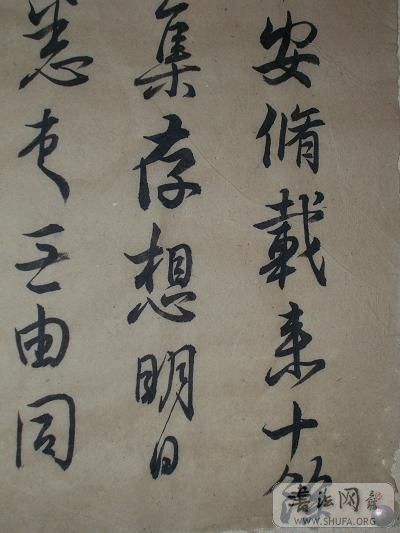 安脩載来十
集存想明日
悉来无由同
書法网
WWW.SHUFA.ORG